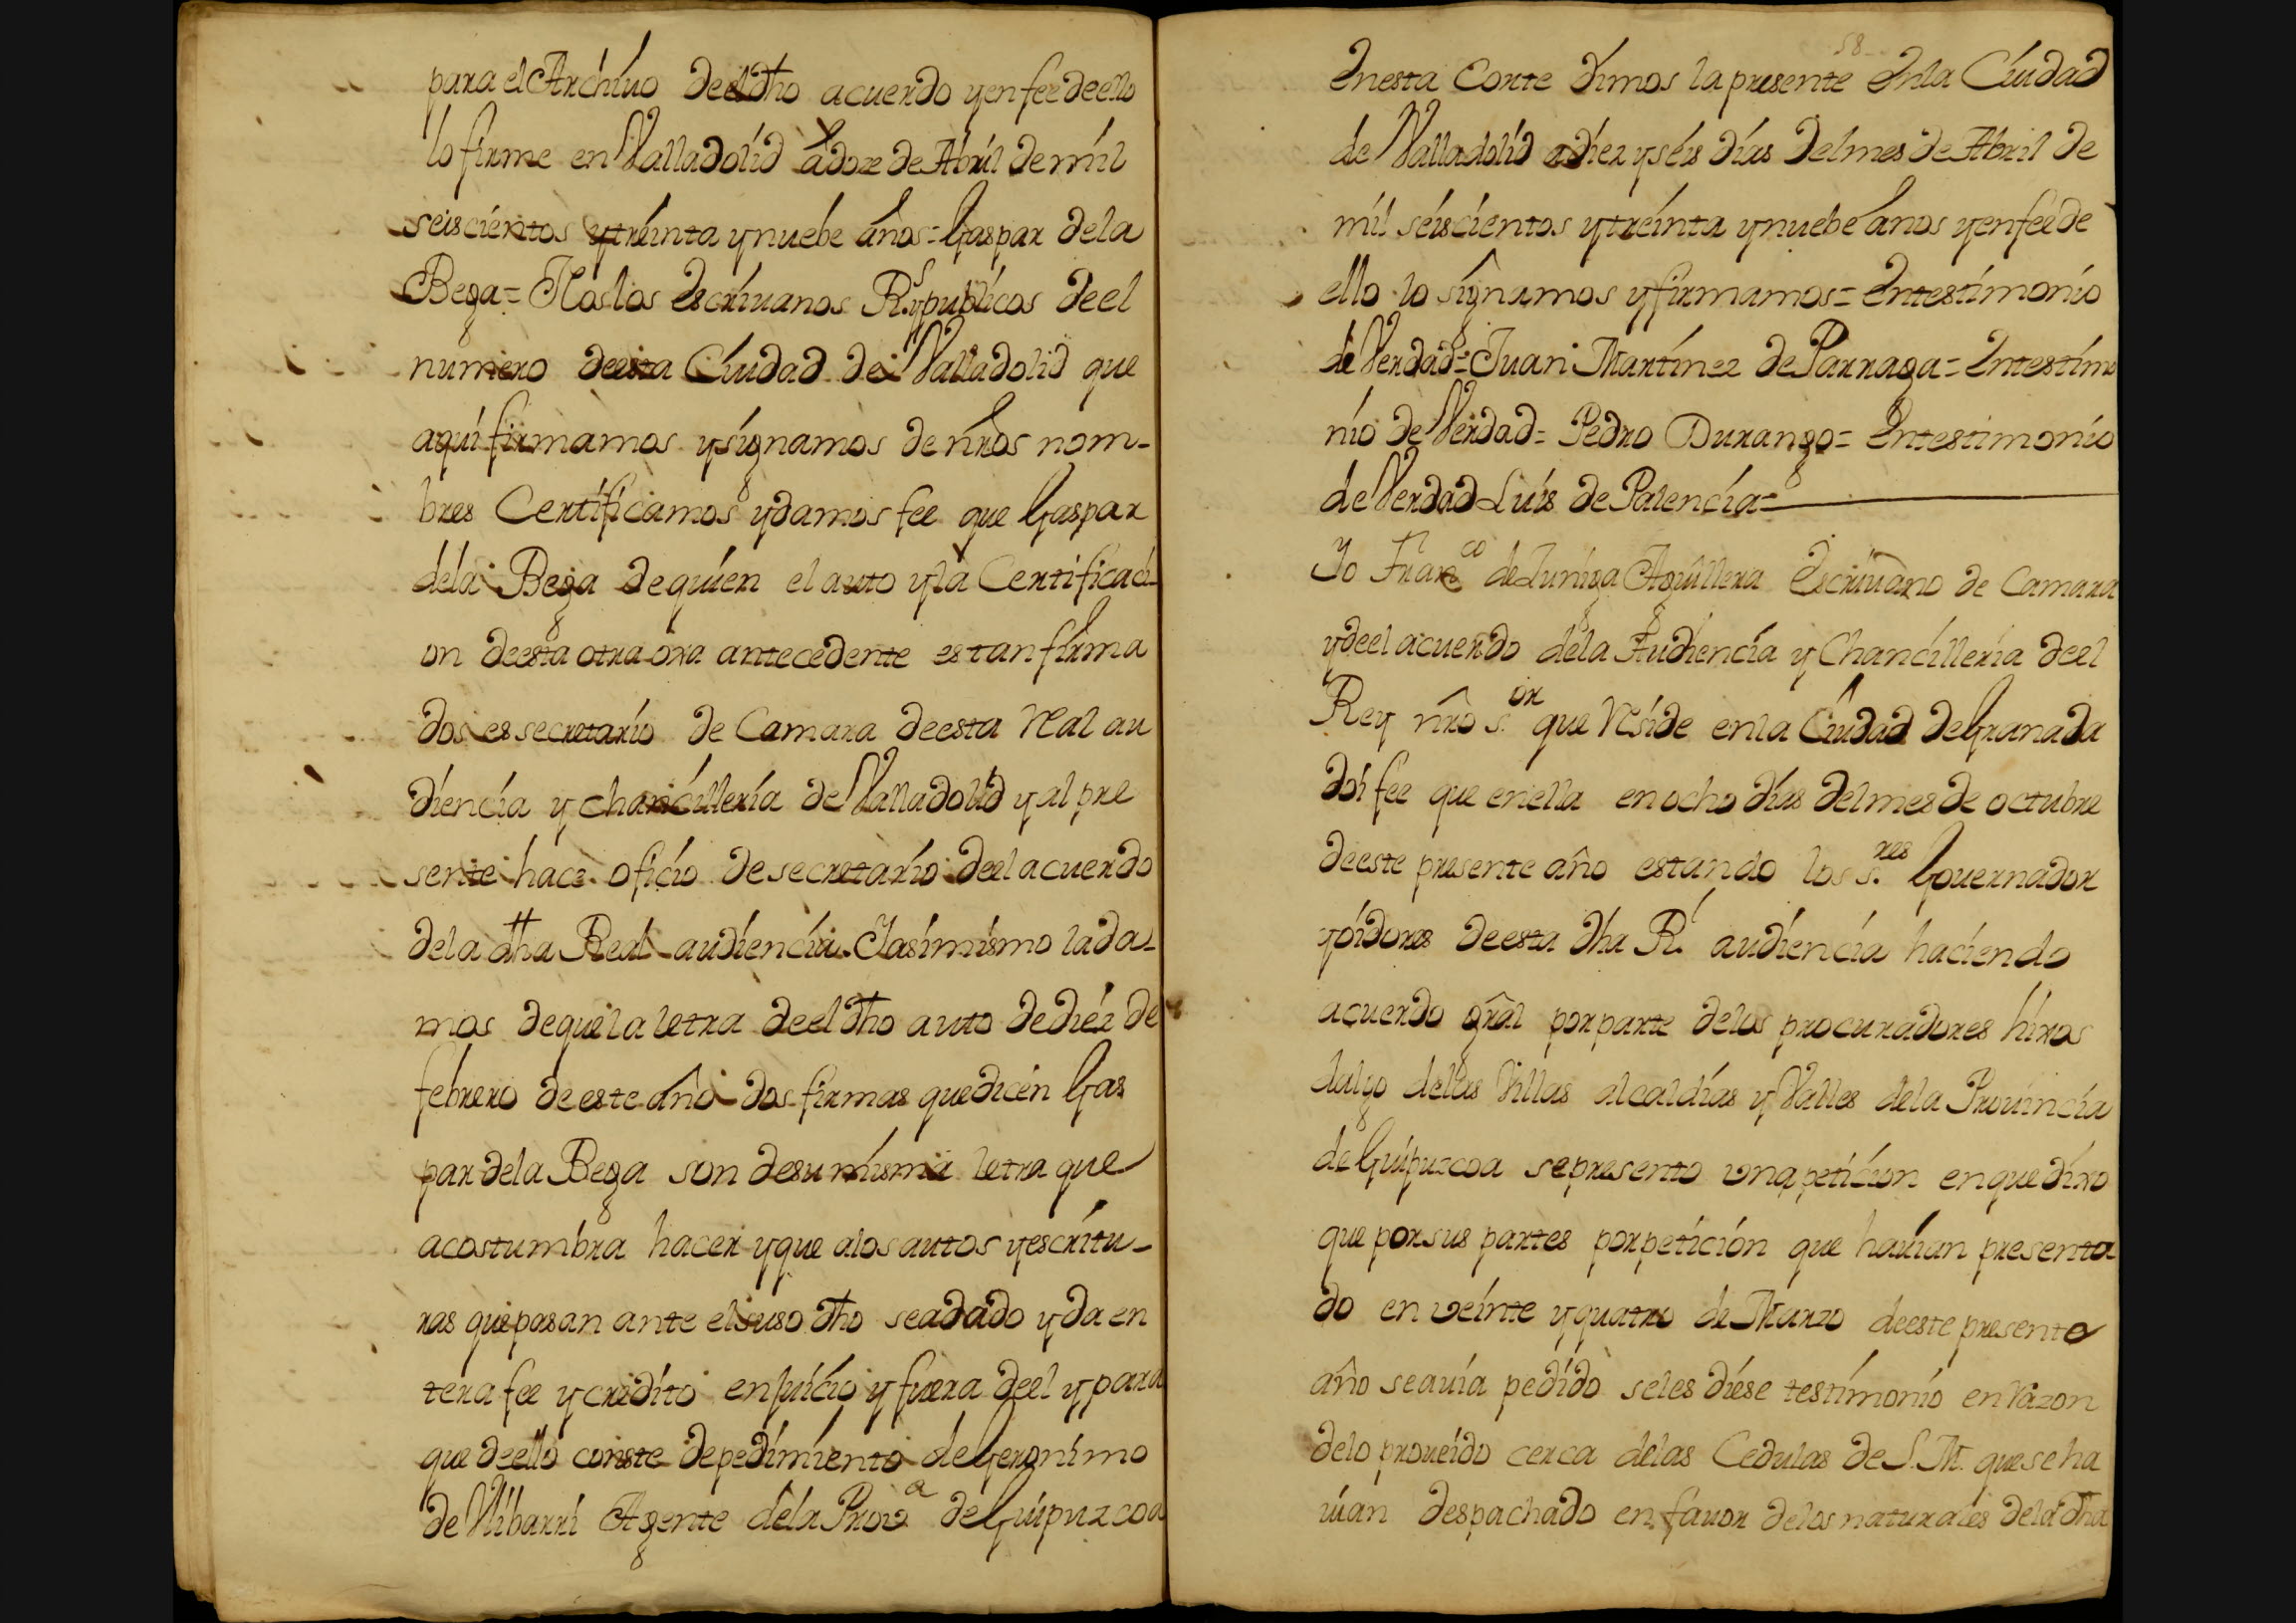 para el Archiuo deel dho acuerdo y en fee deello
lo firme en Valladolid a doze de Abril de mil
seiscientos y treinta y nuebe años = Gaspar de la
Bega = Nos los escriuanos R.s y publicos de el
numero deesta Ciudad de Valladolid que
aqui firmamos y signamos de nr̃os nom-
bres Certificamos y damos fee que Gaspar
dela Bega de quien el auto y la Certificaci-
on deesta otra oxa antecedente estan firma
dos es secretario de Camara deesta Real au
diencia y chancilleria de Valladolid y al pre
sente hace oficio de secretario deel acuerdo
de la dha Real audiencia Y asimismo la da-
mos de que la letra deel dho auto de diez de
febrero de este año dos firmas que dicen Gas
par de la Bega son de su misma letra que
acostumbra hacer y que a los autos y escritu-
ras que pasan ante el suso dho se a dado y da en
tera fee y credito en juicio y fuera deel y para
que deello conste de pedimiento de Geronimo
de Vlibarri Agente de la Prov.a de Guipuzcoa
58
En esta Corte dimos la presente En la Ciudad
de Valladolid a diez y seis dias del mes de Abril de
mil seiscientos y treinta y nuebe años y en fee de
ello lo signamos y firmamos = En testimonio
de Verdad = Juan Martinez de Parraga = En testimo
nio de Verdad = Pedro Durango = En testimonio
de Verdad Luis de Palencia =
Yo Franc.co de Zuniga Aguillera Escriuano de Camara
y deel acuerdo dela Audiencia y Chancilleria deel
Rey nr̃o s.or que Reside en la Ciudad de Granada
doi fee que en ella en ocho dias del mes de octubre
deeste presente año estando los s.res Gouernador
y oidores deesta dha R.l audiencia haciendo
acuerdo gr̃al por parte de los procuradores hixos
dalgo de las Villas alcaldias y Valles de la Prouincia
de Guipuzcoa se presento una peticion en que dixo
que por sus partes por peticion que hauian presenta
do en veinte y quatro de Marzo deeste presente
año se auia pedido se les diese testimonio en razon
de lo proueido cerca de las Cedulas de S. M. que se ha
uian despachado en fauor de los naturales de la dha